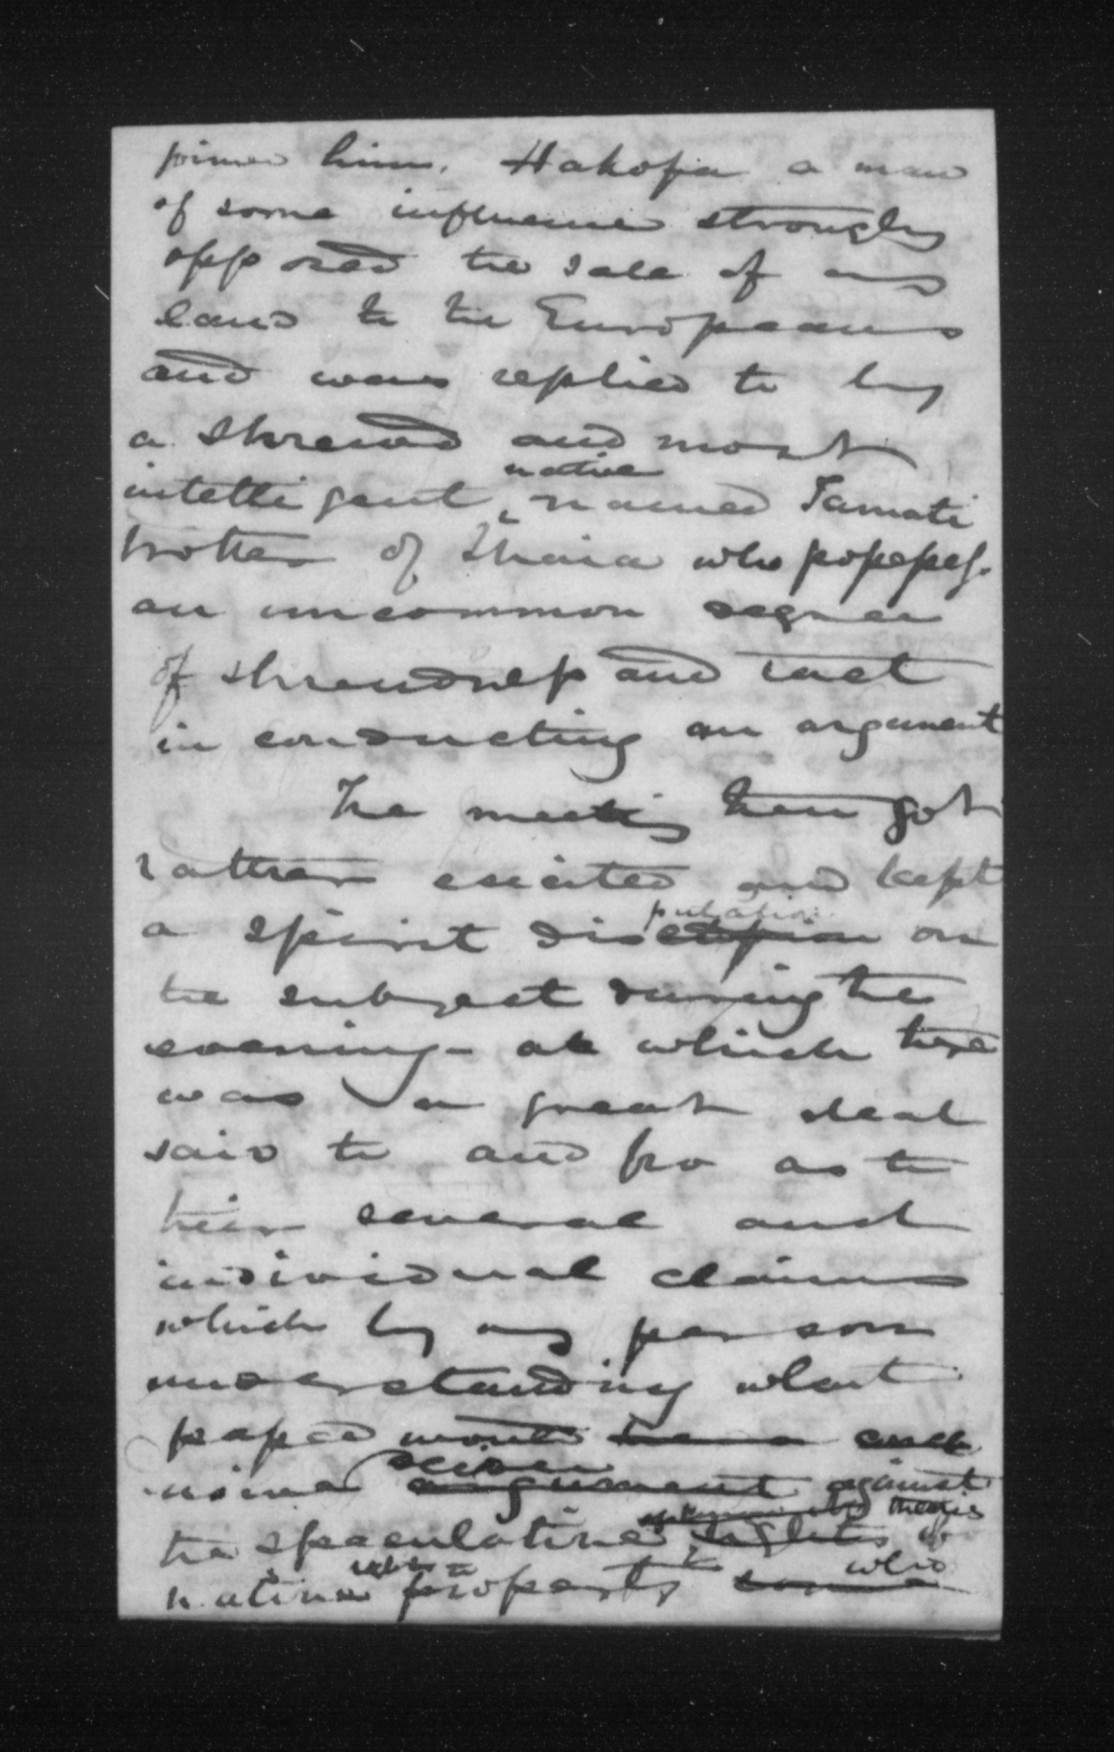 joined him. Hakopa a man
of some influence strongly
opposed the sale of any
land to the Europeans
and was replied to by
a shrewd and most
intelligent native named Tamati
brother of Ihaia who possess.
an uncommon degree
of shrewdness and tact
in conducting an argument
The meeting then got
rather excited and kept
a spirit disputation on
the subject during the
evening - at which there
was a great deal
said to and fro as to
their several and
individual claims
which by any person
understanding what
passed would have
decisive argument against
the speculative rights theories of
native rights to property to some who